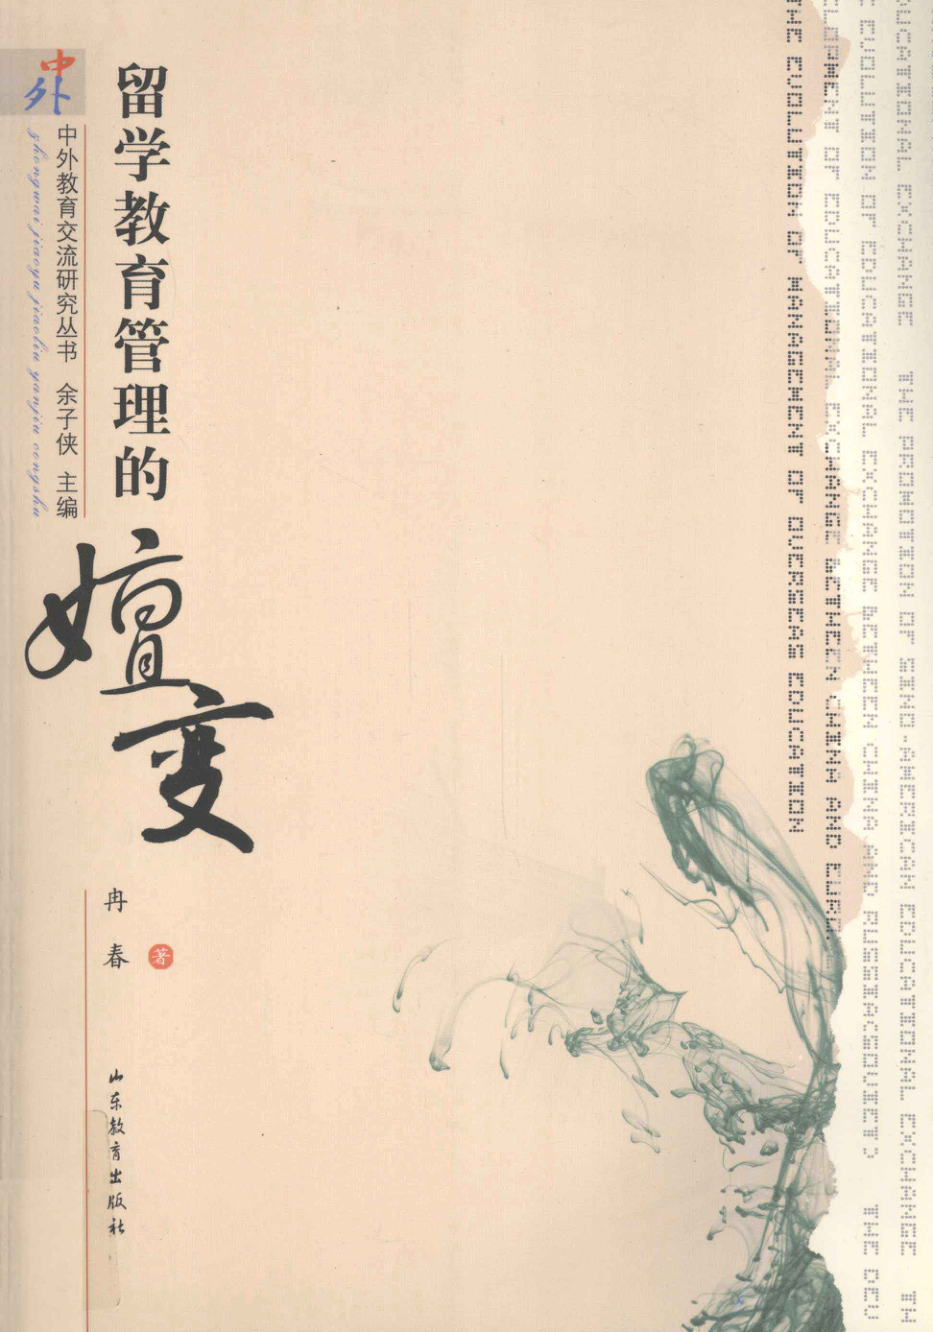 中外
中外教育交流研究丛书 余子侠 主编
zhongwai jiaoyu jiaoliu yanjiu congshu
留学教育管理的
嬗变
冉春 著
山东教育出版社
THE EVOLUTION OF MANAGEMENT OF OVERSEAS EDUCATION
ELOPMENT OF EDUCATIONAL EXCHANGE BETWEEN CHINA AND EURO.
E EVOLUTION OF EDUCATIONAL EXCHANGE BETWEEN CHINA AND RUSSIA(SOVIET) THE DEV
DUCATIONAL EXCHANGE THE PROMOTION OF SINO-AMERICAN EDUCATIONAL EXCHANGE TH